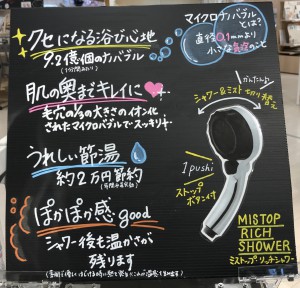 クセになる浴び心地
9.2億個のナノバブル
(1分間あたり)
肌の奥までキレイに
毛穴の1/5の大きさのイオン化
されたマイクロバブルでスッキリ
うれしい節湯
約2万円節約
(年間
ぽかぽか感good
シャワー後も温かさが
残ります
マイクロナノバブル
とは?
直径0.1mmより
小さな気泡のこと
かんたん
シャワー&ミスト切り替え
1push!
ストップ
ボタン付
MISTOP
RICH
SHOWER
ミストップリッチシャワー